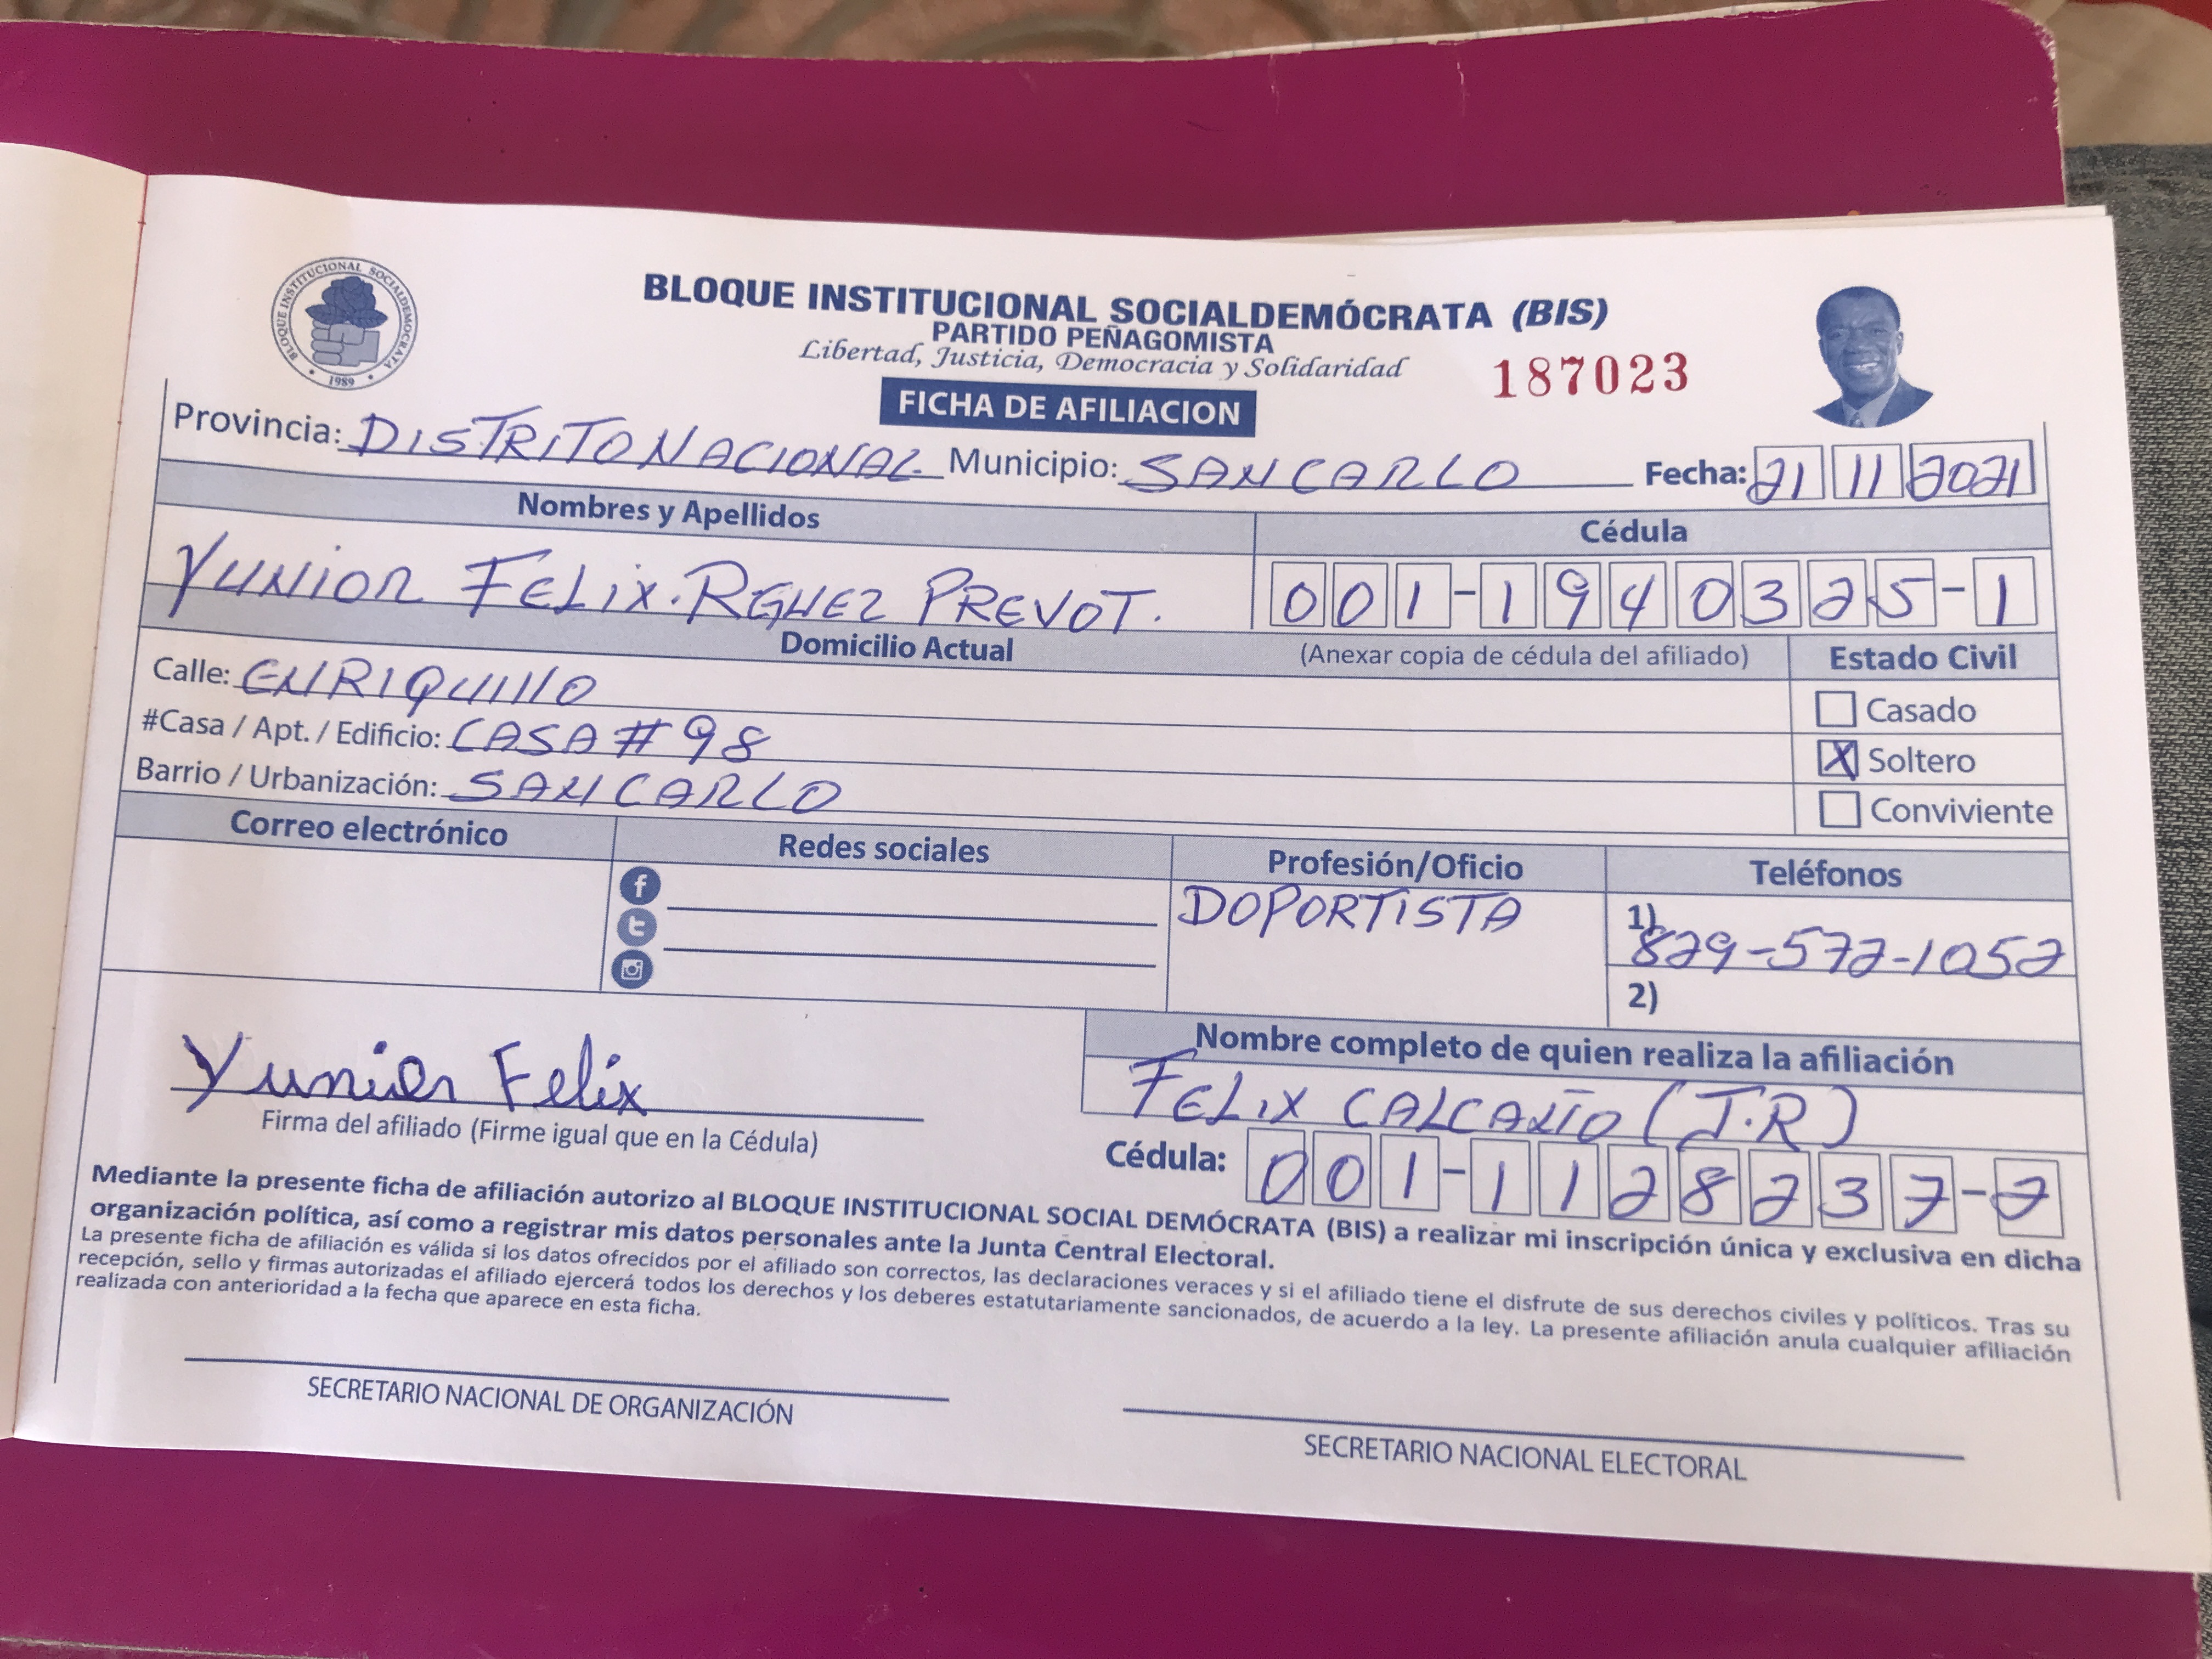 BLOQUE INSTITUCIONAL SOCIALDEMOCRATA
1989
BLOQUE INSTITUCIONAL SOCIALDEMÓCRATA (BIS)
PARTIDO PEÑAGOMISTA
Libertad, Justicia, Democracia y Solidaridad
187023
FICHA DE AFILIACION
Provincia: DISTRITO NACIONAL Municipio: SAN CARLO Fecha: 21 11 2021
Nombres y Apellidos Cédula
YUNIOR FELIX. RGUEZ PREVOT. 001-1940325-1
Domicilio Actual (Anexar copia de cédula del afiliado) Estado Civil
Calle: ENRIQUILLO
Casado
#Casa / Apt. / Edificio: CASA # 98
X Soltero
Barrio / Urbanización: SAN CARLO
Conviviente
Correo electrónico Redes sociales Profesión/Oficio Teléfonos
DOPORTISTA 1) 829-572-1052
2)
Nombre completo de quien realiza la afiliación
FELIX CALCAÑO (J.R)
Yunior Felix
Firma del afiliado (Firme igual que en la Cédula)
Cédula: 001-1128237-2
Mediante la presente ficha de afiliación autorizo al BLOQUE INSTITUCIONAL SOCIAL DEMÓCRATA (BIS) a realizar mi inscripción única y exclusiva en dicha
organización política, así como a registrar mis datos personales ante la Junta Central Electoral.
La presente ficha de afiliación es válida si los datos ofrecidos por el afiliado son correctos, las declaraciones veraces y si el afiliado tiene el disfrute de sus derechos civiles y políticos. Tras su
recepción, sello y firmas autorizadas el afiliado ejercerá todos los derechos y los deberes estatutariamente sancionados, de acuerdo a la ley. La presente afiliación anula cualquier afiliación
realizada con anterioridad a la fecha que aparece en esta ficha.
SECRETARIO NACIONAL DE ORGANIZACIÓN
SECRETARIO NACIONAL ELECTORAL